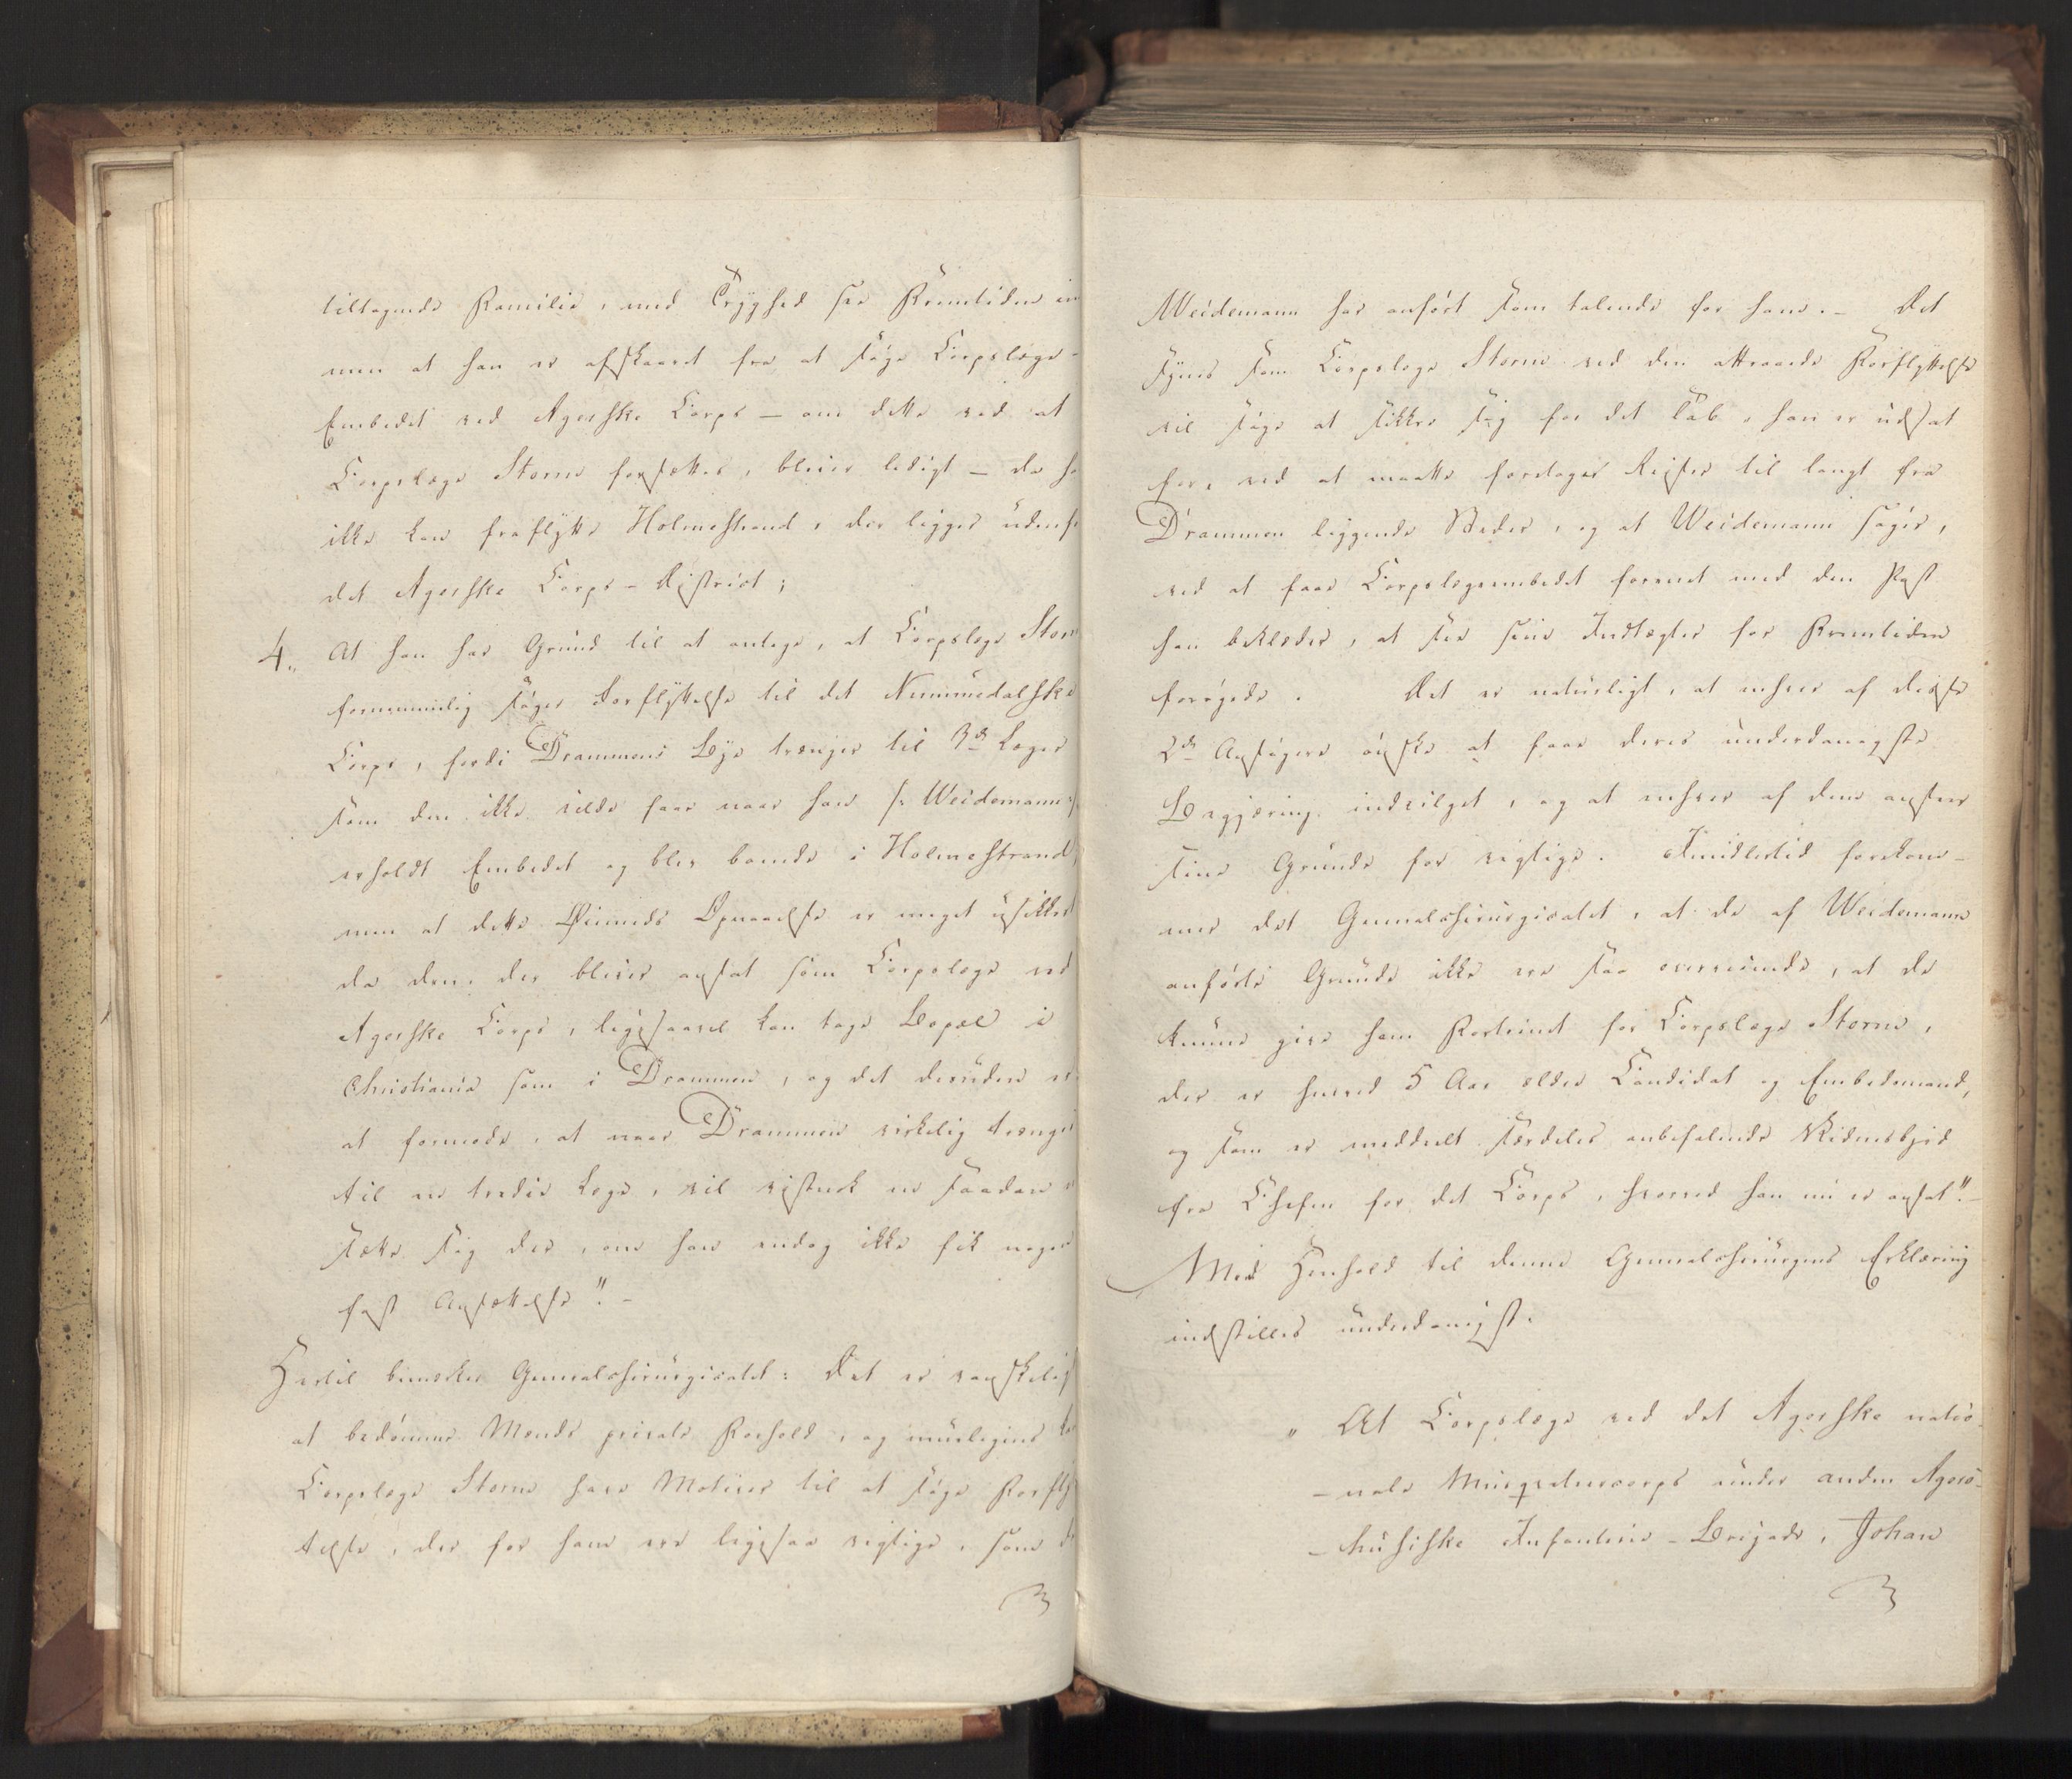 tiltagende Familie, med Tryghed see Fremtiden im
men at han er afskaaret fra at søge Corpslæge-
Embedet ved Agerske Corps – om dette ved at
Corpslæge Storm forsættes, bliver ledigt – da ha
ikke kan fraflytte Holmestrand, der ligger udenfo
det Agerske Corps-District;
4., At han har Grund til at antage, at Corpslæge Storm
fornemmelig søger Forflyttelse til det Nummedalske
Corps, fordi Drammens Bye trænger til 3de Læger
som den ikke vilde faae naar han /: Weidemann :/
erholdt Embedet og blev boende i Holmestrand,
men at dette Øiemeds Opnaaelse er meget usikkert
da den, der bliver ansat som Corpslæge ved
Agerske Corps, ligesaavel kan tage Bopæl i
Christiania som i Drammen, og det desuden er
at formode, at naar Drammen virkelig trænger
til en tredie Læge, vil vistnok en saadan
sætte sig der, om han endog ikke fik nogen
fast Ansættelse". –
Hertil bemærker Generalchirurgicatet: Det er vanskeligt
at bedømme Mænds private Forhold, og mueligens ka
Corpslæge Storm have Motiver til at søge Forfly
telse, der for ham ere ligesaa vigtige, som de
Weidemann har anført som talende for ham. – Det
synes som Corpslæge Storm ved den attraaede Forflyttelse
vil søge at sikkre sig for det Tab, han er udsat
for, ved at maatte foretage Reiser til langt fra
Drammen liggende Steder, og at Weidemann søger,
ved at faae Corpslægeembedet forenet med den Post
han beklæder, at see sine Indtægter for Fremtiden
forøgede. Det er naturligt, at enhver af disse
2de Ansøgere ønske at faae deres underdanigste
Begjæring indvilget, og at enhver af dem anseer
sine Grunde for vigtige. Imidlertid forekom-
mer det Generalchirurgicatet, at de af Weidemann
anførte Grunde ikke ere saa overveiende, at de
kunne give ham Fortrinet for Corpslæge Storm,
der er hverved 5 Aar ældre Candidat og Embedsmand,
og som er meddeelt særdeles anbefalende Vidnesbyrd
fra Chefen for det Corps, hvorved han nu er ansat". –
Med Henhold til denne Generalchirurgens Erklæring
indstilles underdanigst.
„ At Corpslæge ved det Agerske natio-
– nale Musqueteercorps under anden Agers-
– huusiske Infanterie-Brigade, Johan